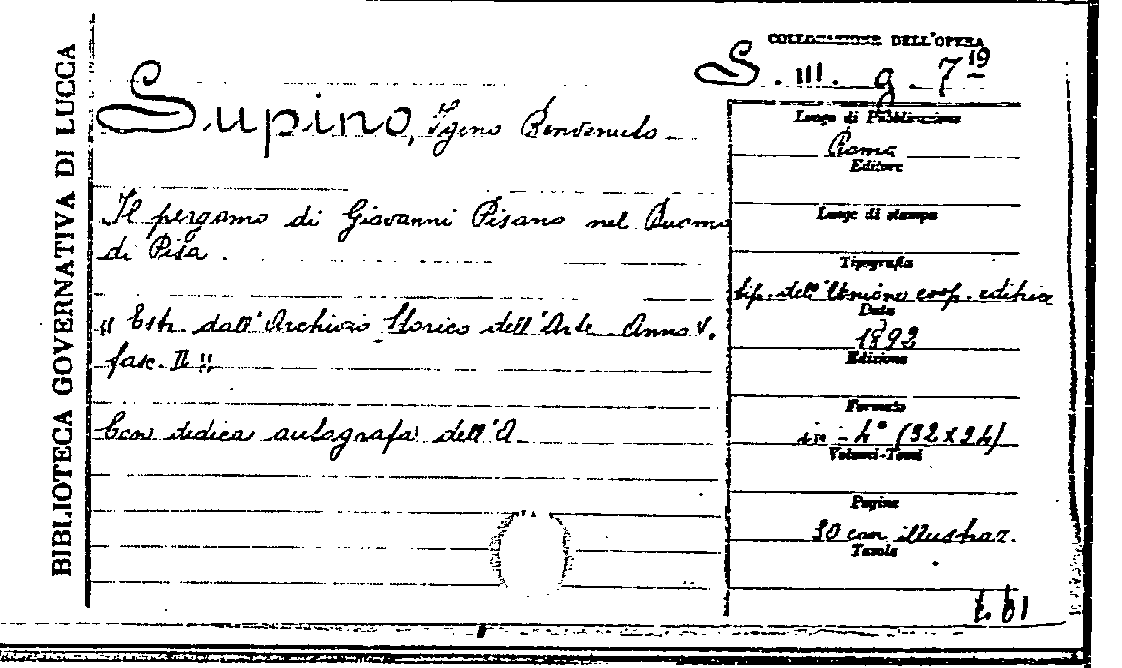 BIBLIOTECA GOVERNATIVA DI LUCCA
COLLOCAZIONE DELL'OPERA
S. III. g. 7 19
Supino, Igino Benvenuto
Luogo di Pubblicazione
Roma
Editore
Il pergamo di Giovanni Pisano nel Duomo
di Pisa.
Luogo di stampa
Tipografia
tip. dell'Unione coop. editrice
Data
" Estr. dall'Archivio Storico dell'Arte Anno V.
1892
fasc. II "
Edizione
Formato
Con dedica autografa dell'A
in-4° (32x24)
Volumi-Tomi
Pagine
con illustraz.
Tavole